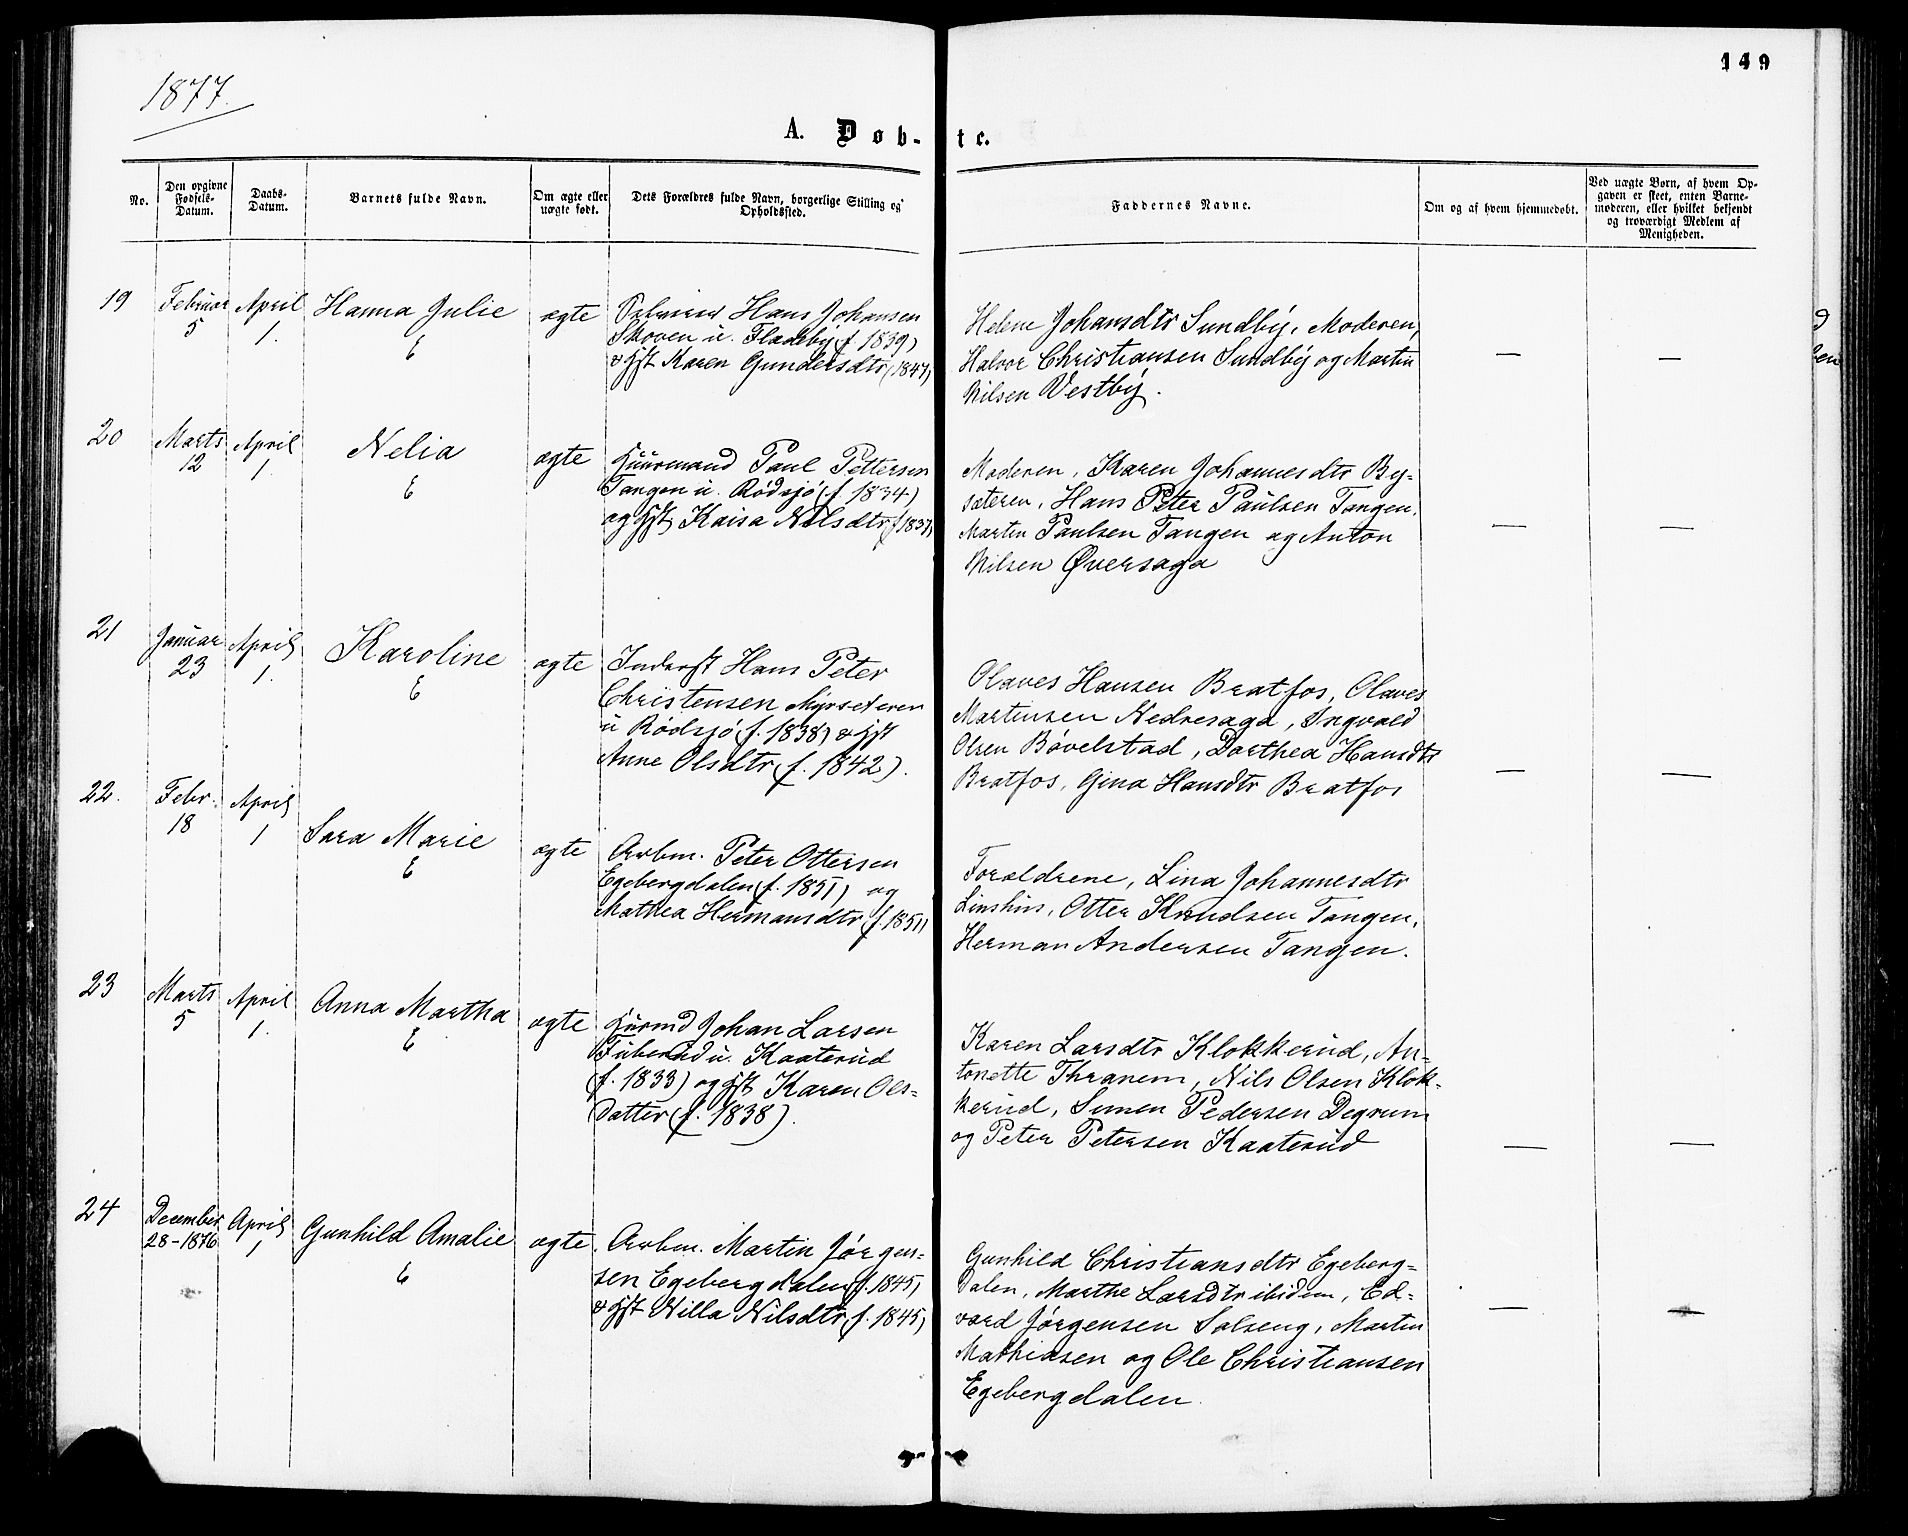 149
1877.
A. Døb-
te.
No.
Den opgivne
Fødsels-
Datum.
Daabs-
Datum.
Barnets fulde Navn.
Om ægte eller
uægte født.
Dets Forældres fulde Navn, borgerlige Stilling og
Opholdssted.
Faddernes Navne.
Om og af hvem hjemmedøbt.
Ved uægte Børn, af hvem Op-
gaven er skeet, enten Barne-
moderen, eller hvilket bekjendt
og troværdigt Medlem af
Menigheden.
19
Februar
5
April
1.
Hanna Julie
E
ægte
Hans Johansen
Skoven u. Fladeby (f. 1839)
& Hst Karen Gundersdtr (1847)
Helene Johansdtr Sundby, Moderen,
Halvor Christiansen Sundby og Martin
Nilsen Vestby.
—
—
20
Marts
12
April
1.
Nelia
E
ægte
Huusmand Paul Pettersen
Tangen u. Rødsjø (f. 1834)
og Hst Kaisa Nilsdtr (f. 1837)
Moderen, Karen Johannesdtr By-
sæteren, Hans Peter Paulsen Tangen,
Martin Paulsen Tangen og Anton
Nilsen Øversaga
—
—
21
Januar
23
April
1.
Karoline
E
ægte
Inderst Hans Peter
Christensen Myrseteren
u Rødsjø (f. 1838) & Hst
Anne Olsdtr (f. 1842).
Olaves Hansen Bratfos, Olaves
Martinsen Nedresaga, Ingvald
Olsen Bøvelstad, Dorthea Hansdtr
Bratfos, Gina Hansdtr Bratfos
—
—
22.
Febr.
18
April
1
Sara Marie
E
ægte
Arbm. Peter Ottersen
Egebergdalen (f. 1851) og
Mathea Hermansdtr (f. 1851)
Forældrene, Lina Johannesdtr
Otter Knudsen Tangen,
Herman Andersen Tangen.
23
Marts
5
April
1.
Anna Martha
E
ægte
Husmd Johan Larsen
u. Kaaterud
(f. 1833) og Hst Karen Ols-
datter (f. 1838).
Karen Larsdtr Klokkerud, An-
tonette Thranem, Nils Olsen Klok-
kerud, Simen Pedersen Degrum
og Peter Petersen Kaaterud
—
—
24
December
28-1876
April
1
Gunhild Amalie
E
ægte.
Arbm. Martin Jørgen-
sen Egebergdalen (f. 1845)
& Hst Nilla Nilsdtr (f. 1845)
Gunhild Christiansdtr Egeberg-
dalen, Marthe Larsdtr ibidem, Ed-
vard Jørgensen Solseng, Martin
Mathiasen og Ole Christiansen
Egebergdalen.
—
—